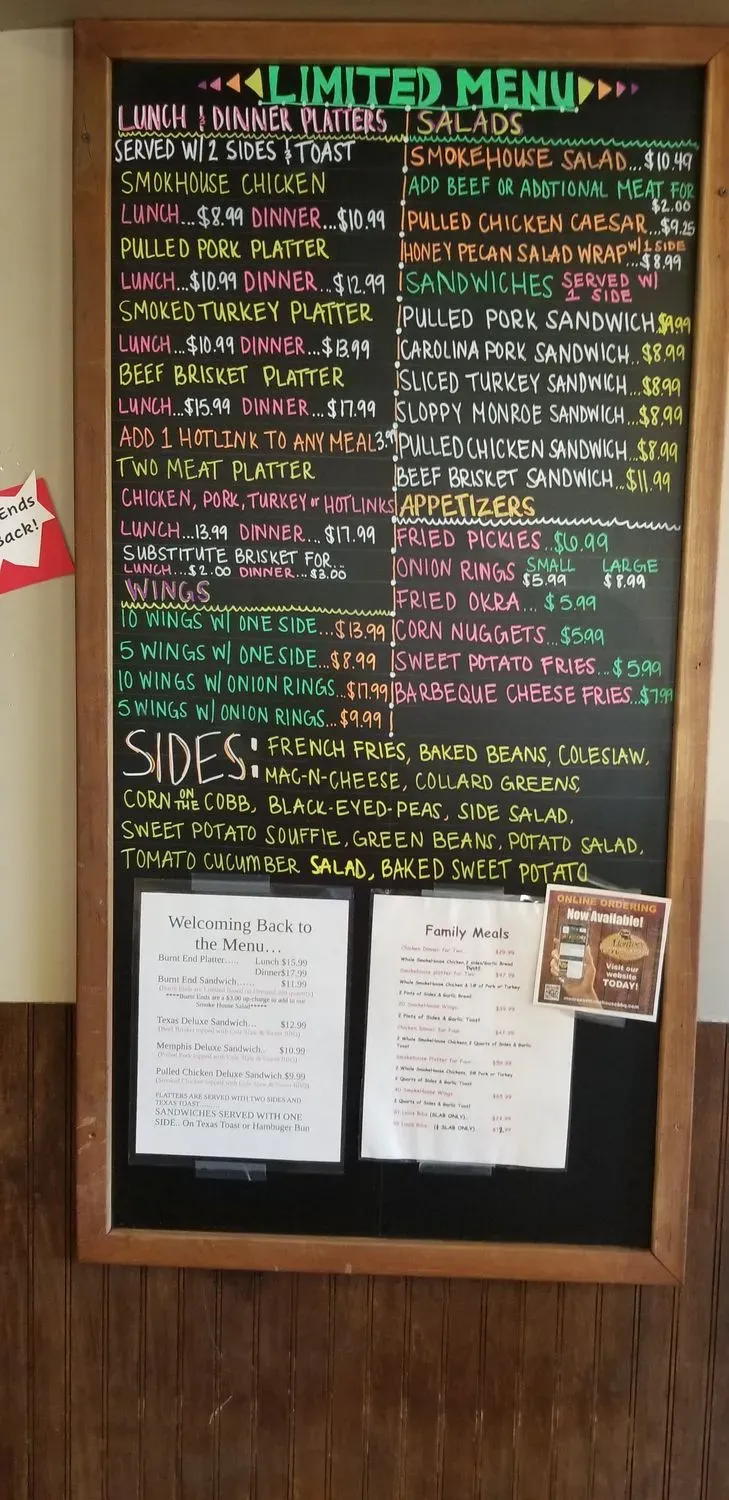 LIMITED MENU
LUNCH & DINNER PLATTERS
SERVED W/ 2 SIDES & TOAST
SMOKHOUSE CHICKEN
LUNCH...$8.99 DINNER...$10.99
PULLED PORK PLATTER
LUNCH...$10.99 DINNER...$12.99
SMOKED TURKEY PLATTER
LUNCH...$10.99 DINNER...$13.99
BEEF BRISKET PLATTER
LUNCH...$15.99 DINNER...$17.99
ADD 1 HOTLINK TO ANY MEAL 3.99
TWO MEAT PLATTER
CHICKEN, PORK, TURKEY or HOTLINKS
LUNCH...13.99 DINNER...$17.99
SUBSTITUTE BRISKET FOR...
LUNCH...$2.00 DINNER...$3.00
WINGS
10 WINGS W/ ONE SIDE...$13.99
5 WINGS W/ ONE SIDE...$8.99
10 WINGS W/ ONION RINGS...$17.99
5 WINGS W/ ONION RINGS...$9.99
SALADS
SMOKEHOUSE SALAD...$10.49
ADD BEEF OR ADDTIONAL MEAT FOR
$2.00
PULLED CHICKEN CAESAR...$9.25
HONEY PECAN SALAD WRAP W/ 1 SIDE
...$8.99
SANDWICHES SERVED W/
1 SIDE
PULLED PORK SANDWICH $9.99
CAROLINA PORK SANDWICH..$8.99
SLICED TURKEY SANDWICH...$8.99
SLOPPY MONROE SANDWICH...$8.99
PULLED CHICKEN SANDWICH...$8.99
BEEF BRISKET SANDWICH...$11.99
APPETIZERS
FRIED PICKIES..$6.99
ONION RINGS SMALL LARGE
$5.99 $8.99
FRIED OKRA...$5.99
CORN NUGGETS...$5.99
SWEET POTATO FRIES...$5.99
BARBEQUE CHEESE FRIES...$7.99
SIDES: FRENCH FRIES, BAKED BEANS, COLESLAW,
MAC-N-CHEESE, COLLARD GREENS,
CORN ON THE COBB, BLACK-EYED-PEAS, SIDE SALAD,
SWEET POTATO SOUFFIE, GREEN BEANS, POTATO SALAD,
TOMATO CUCUMBER SALAD, BAKED SWEET POTATO
Ends
Back!
Welcoming Back to
the Menu...
Burnt End Platter..... Lunch $15.99
Dinner$17.99
Burnt End Sandwich...... $11.99
****Burnt Ends are a $3.00 up-charge to add to our
Smoke House Salad*****
Texas Deluxe Sandwich... $12.99
Memphis Deluxe Sandwich.. $10.99
Pulled Chicken Deluxe Sandwich $9.99
PLATTERS ARE SERVED WITH TWO SIDES AND
TEXAS TOAST......
SANDWICHES SERVED WITH ONE
SIDE.. On Texas Toast or Hambuger Bun
Family Meals
Chicken Dinner for Two
Whole SmokeHouse Chicken 2 sides/Garlic Bread
Smokehouse platter for Two
Whole SmokeHouse Chicken & 1# of Pork or Turkey
2 Pints of Sides & Garlic Bread
20 SmokeHouse Wings
2 Pints of Sides & Garlic Toast
Chicken Dinner for Four
2 Whole SmokeHouse Chickens, 2 Quarts of Sides & Garlic
Toast
Smokehouse Platter for Four
2 Whole SmokeHouse Chickens, Pork or Turkey
2 Quarts of Sides & Garlic Toast
40 SmokeHouse Wings
2 Quarts of Sides & Garlic Toast
(SLAB ONLY)
SLAB ONLY)
ONLINE ORDERING
Now Available!
Visit our
website
TODAY!